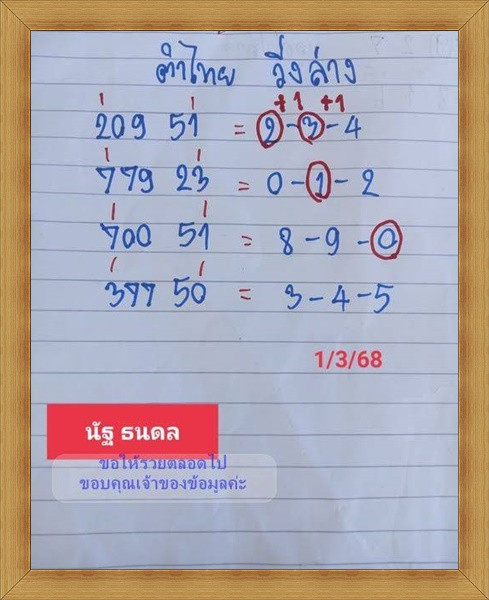 ทำไทย วิ่งล่าง
+1 +1
209 51 = 2-3-4
779 23 = 0-1-2
700 51 = 8-9-0
377 50 = 3-4-5
1/3/68
นัฐ ธนดล
ขอให้รวยตลอดไป
ขอบคุณเจ้าของข้อมูลค่ะ